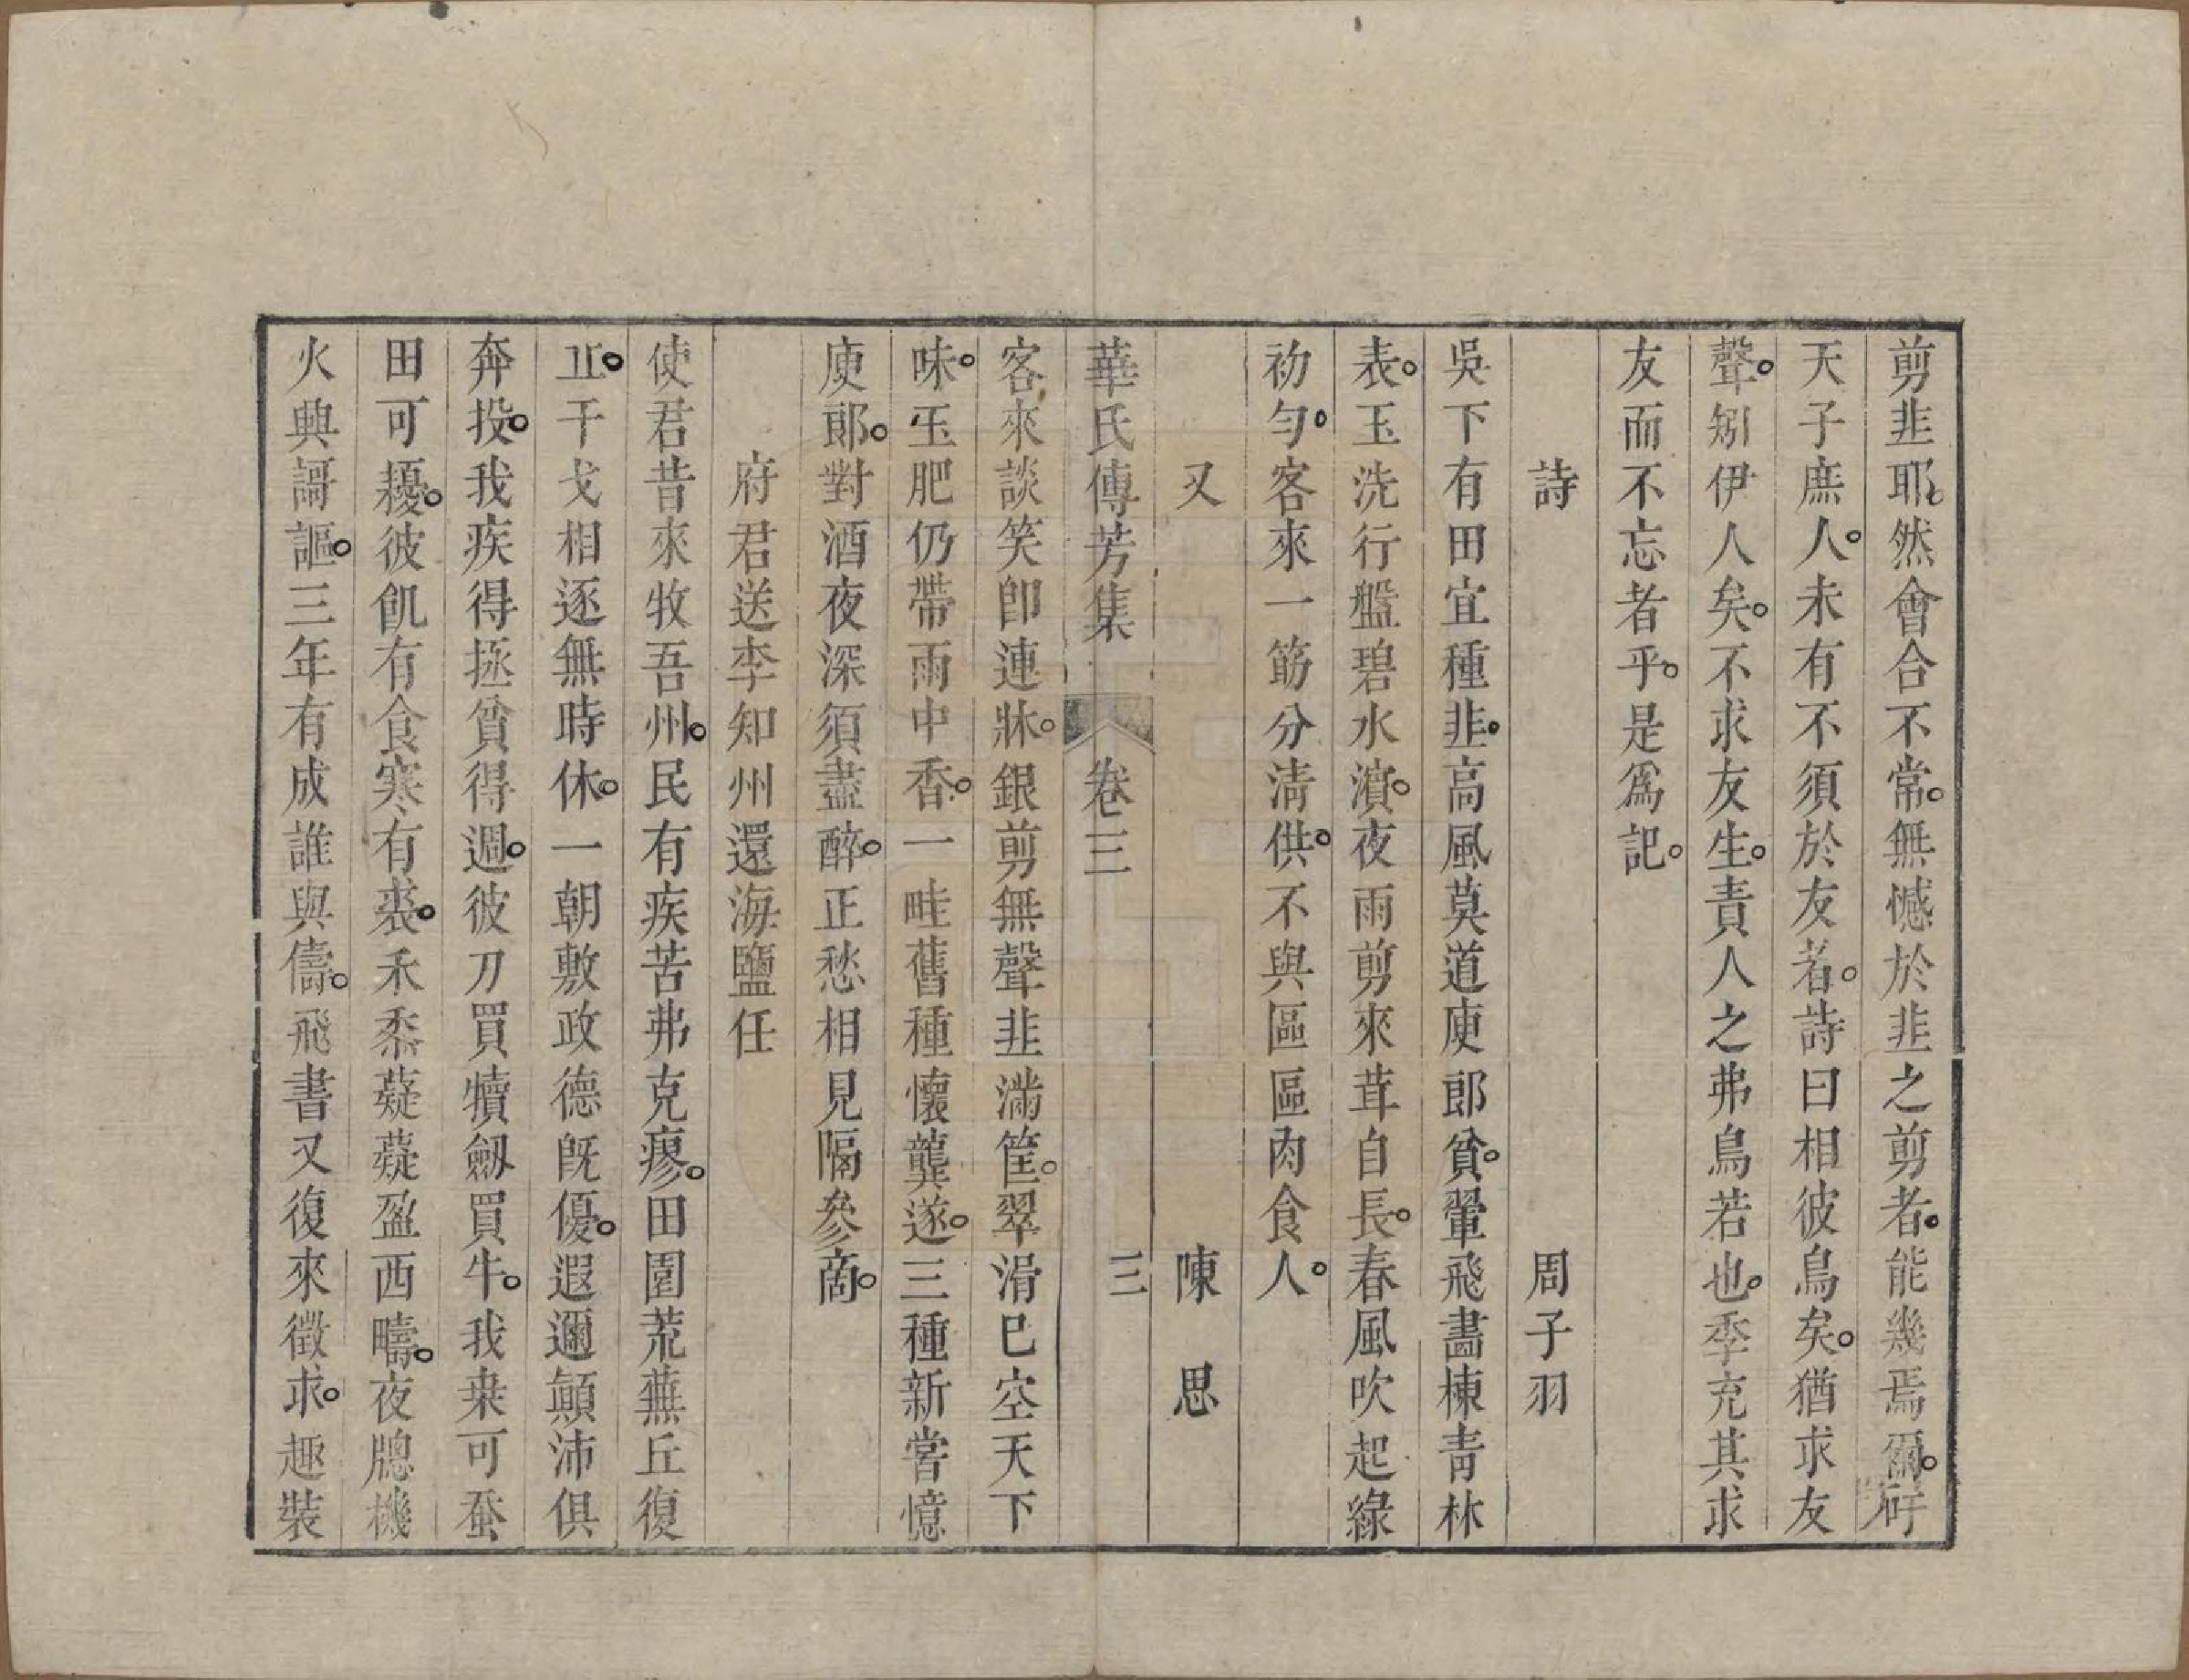 剪韭耶。然會合不常。無憾於韭之剪者。能幾焉爾。吁
天子庶人。未有不須於友者。詩曰相彼鳥矣。猶求友
聲。矧伊人矣。不求友生。責人之弗鳥若也。季充其求
友而不忘者乎。是爲記。
詩　周子羽
吳下有田宜種韭。高風莫道庾郎貧。翬飛畵棟青林
表。玉洗行盤碧水濵。夜雨剪來茸自長。春風吹起綠
初勻。客來一筯分淸供。不與區區肉食人。
又　陳思
華氏傳芳集　卷三　三
客來談笑卽連牀。銀剪無聲韭滿筐。翠滑已空天下
味。玉肥仍帶雨中香。一畦舊種懷龔遂。三種新嘗憶
庾郎。對酒夜深須盡醉。正愁相見隔參啇。
府君送李知州還海鹽任
使君昔來牧吾州。民有疾苦弗克瘳。田園荒蕪丘復
丘。干戈相逐無時休。一朝敷政德旣優。遐邇顚沛俱
奔投。我疾得拯貧得週。彼刀買犢劒買牛。我桒可蚕
田可耰。彼飢有食寒有裘。禾黍薿薿盈西疇。夜牕機
火典謌謳。三年有成誰與儔。飛書又復來徵求。趣裝